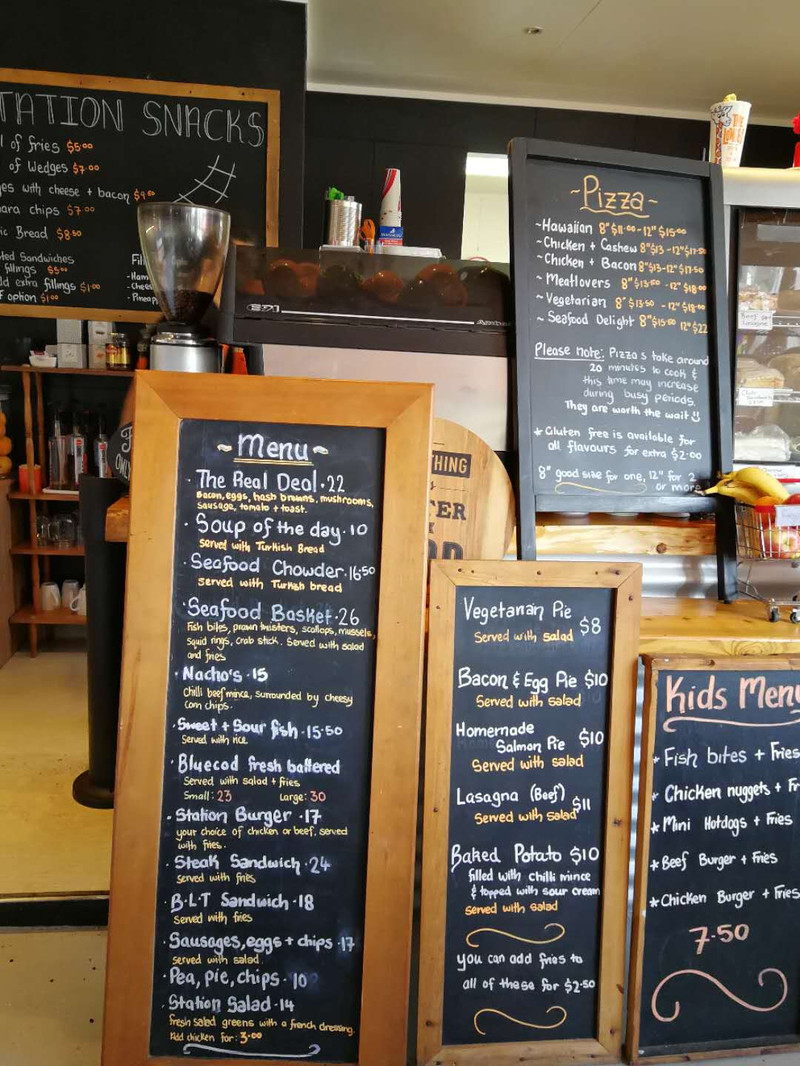 TATION SNACKS
l of fries $5.00
of Wedges $7.00
ges with cheese + bacon $9.50
chips $7.00
ic Bread $8.50
Sandwiches
fillings $5.00
dd extra fillings $1.00
option $1.00
~Menu~
· The Real Deal · 22
Bacon, eggs, hash browns, mushrooms,
sausage, tomato + toast.
· Soup of the day · 10
served with Turkish Bread
· Seafood Chowder · 16.50
served with Turkish bread
· Seafood Basket · 26
Fish bites, prawn twisters, scallops, mussels,
squid rings, crab stick. Served with salad
and fries
· Nacho's · 15
chilli beef mince, surrounded by cheesy
corn chips.
· Sweet + Sour fish · 15.50
Served with rice
· Bluecod fresh battered
Served with salad + fries
Small: 23 Large: 30
· Station Burger · 17
your choice of chicken or beef. served
with fries.
· Steak Sandwich · 24
served with fries
· B.L.T Sandwich · 18
Served with fries
· Sausages, eggs + chips · 17
served with salad.
· Pea, pie, chips · 10
· Station Salad · 14
fresh salad greens with a french dressing.
Add chicken for: 3.00
THING
TER
Vegetarian Pie $8
Served with salad
Bacon & Egg Pie $10
Served with salad
Homemade
Salmon Pie $10
Served with salad
Lasagna (Beef) $11
Served with salad
Baked Potato $10
filled with chilli mince
& topped with sour cream
Served with salad
you can add fries to
all of these for $2.50
~Pizza~
~ Hawaiian 8" $11.00 - 12" $15.00
~ Chicken + Cashew 8" $13 - 12" $17.50
~ Chicken + Bacon 8" $13 - 12" $17.50
~ Meatlovers 8" $13.50 - 12" $18.00
~ Vegetarian 8" $13.50 - 12" $18.00
~ Seafood Delight 8" $15.50 12" $22
Please note: Pizza's take around
20 minutes to cook &
this time may increase
during busy periods.
They are worth the wait
* Gluten free is available for
all flavours for extra $2.00
8" good size for one, 12" for 2
or more
Kids Menu
* Fish bites + Fries
* Chicken nuggets + Fr
* Mini Hotdogs + Fries
* Beef Burger + Fries
* Chicken Burger + Fries
7.50